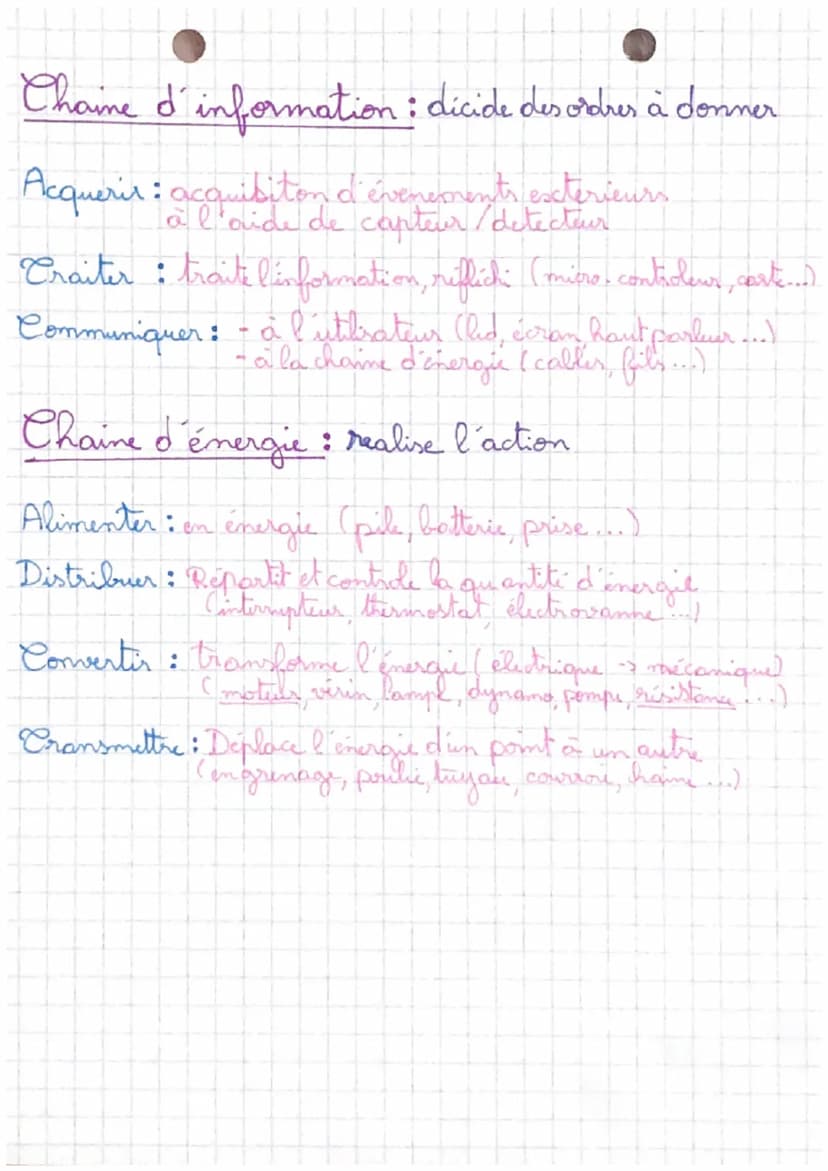 Chaine d'information : décide des ordres à donner
Acquerir : acquisiton d'évenements exterieurs
à l'aide de capteur / detecteur
Traiter : traite l'information, réfléchi (micro-controleur, carte...)
Communiquer : - à l'utilisateur (led, écran, haut parleur ...)
- à la chaine d'énergie (cables, fils ...)
Chaine d'énergie : realise l'action
Alimenter : en énergie (pile, batterie, prise ...)
Distribuer : Répartit et controle la quantité d'énergie
(interrupteur, thermostat, électrovanne ...)
Convertir : transforme l'énergie (électrique -> mécanique)
(moteurs, vérin, lampe, dynamo, pompe, résistance ...)
Transmettre : Déplace l'énergie d'un point à un autre
(engrenage, poulie, tuyau, courroie, chaine ...)